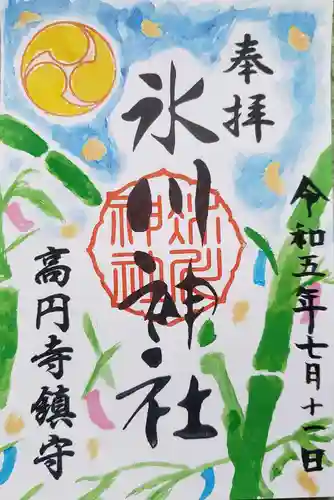 奉拝
氷川神社
氷川神社
令和五年七月十一日
高円寺鎮守